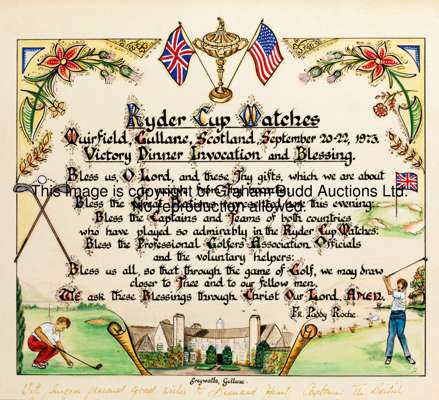 Ryder Cup Matches
Muirfield, Gullane, Scotland, September 20-22, 1973.
Victory Dinner Invocation and Blessing.
Bless us, O Lord, and these Thy gifts, which we are about
This image is copyright of Graham Budd Auctions Ltd.
No reproduction allowed.
Bless the
this evening:
Bless the Captains and Teams of both countries
who have played so admirably in the Ryder Cup Matches:
Bless the Professional Golfers Association Officials
and the voluntary helpers:
Bless us all, so that through the game of Golf, we may draw
closer to Thee and to our fellow men.
We ask these Blessings through Christ Our Lord, AMEN.
Fr. Paddy Roche.
Greywalls, Gullane.
With sincere personal good wishes to Bernard Hunt. Captain. The British